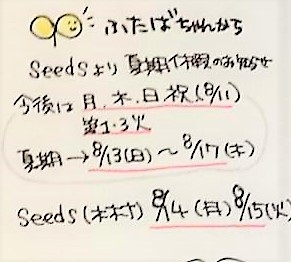 ふたばちゃんから
Seedsより 夏期休暇のお知らせ
今後は 月.木.日祝(8/11)
第1.3火
夏期→8/13(日)〜8/17(木)
Seeds(本村) 8/14(月)8/15(火)